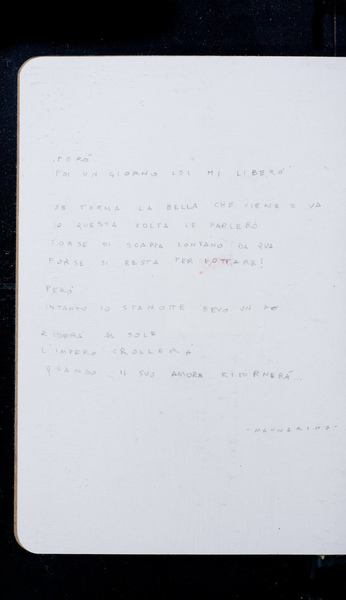 PERÒ
POI UN GIORNO LEI MI LIBERÒ
SE TORNA LA BELLA CHE VIENE E VA
IO QUESTA VOLTA LE PARLERÒ
FORSE SI SCAPPA LONTANO DA QUA
FORSE SI RESTA PER LOTTARE!
PERÒ
INTANTO IO STANOTTE BEVO UN PO'
RIDERÀ AL SOLE
L'IMPERO CROLLERÀ
QUANDO IL SUO AMORE RITORNERÀ...
- MANNARINO -